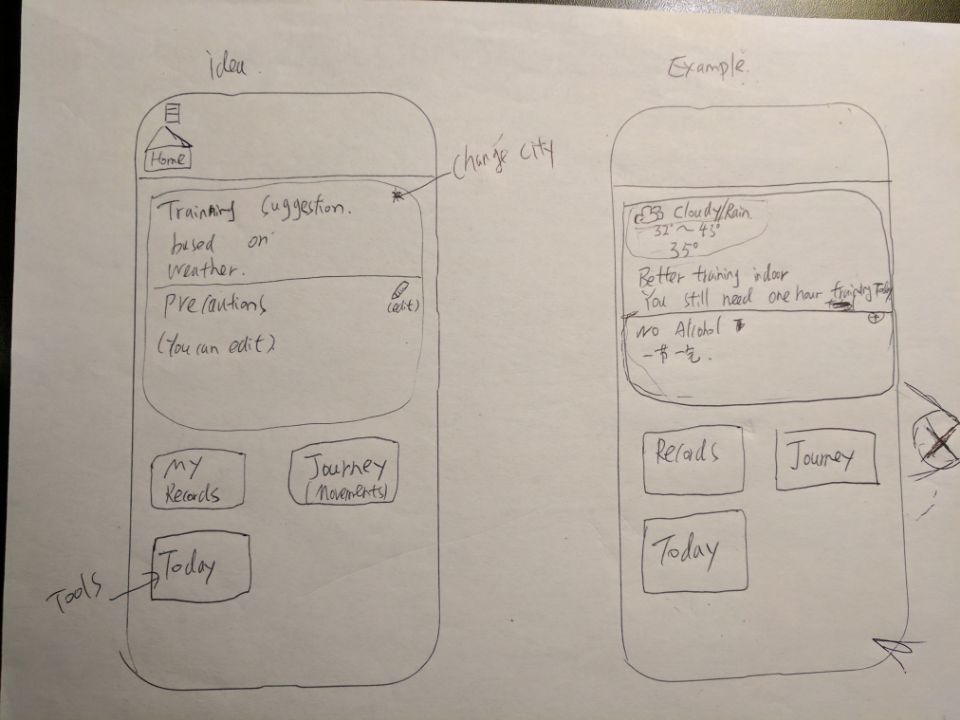 idea.
Home
change city
Training suggestion.
based on
weather.
Precautions
(edit)
(You can edit)
My
Records
Journey
(Movements)
Today
Tools
Example.
Cloudy/Rain
32° ~ 43°
35°
Better training indoor
You still need one hour training Today
No Alcohol
Records
Journey
Today